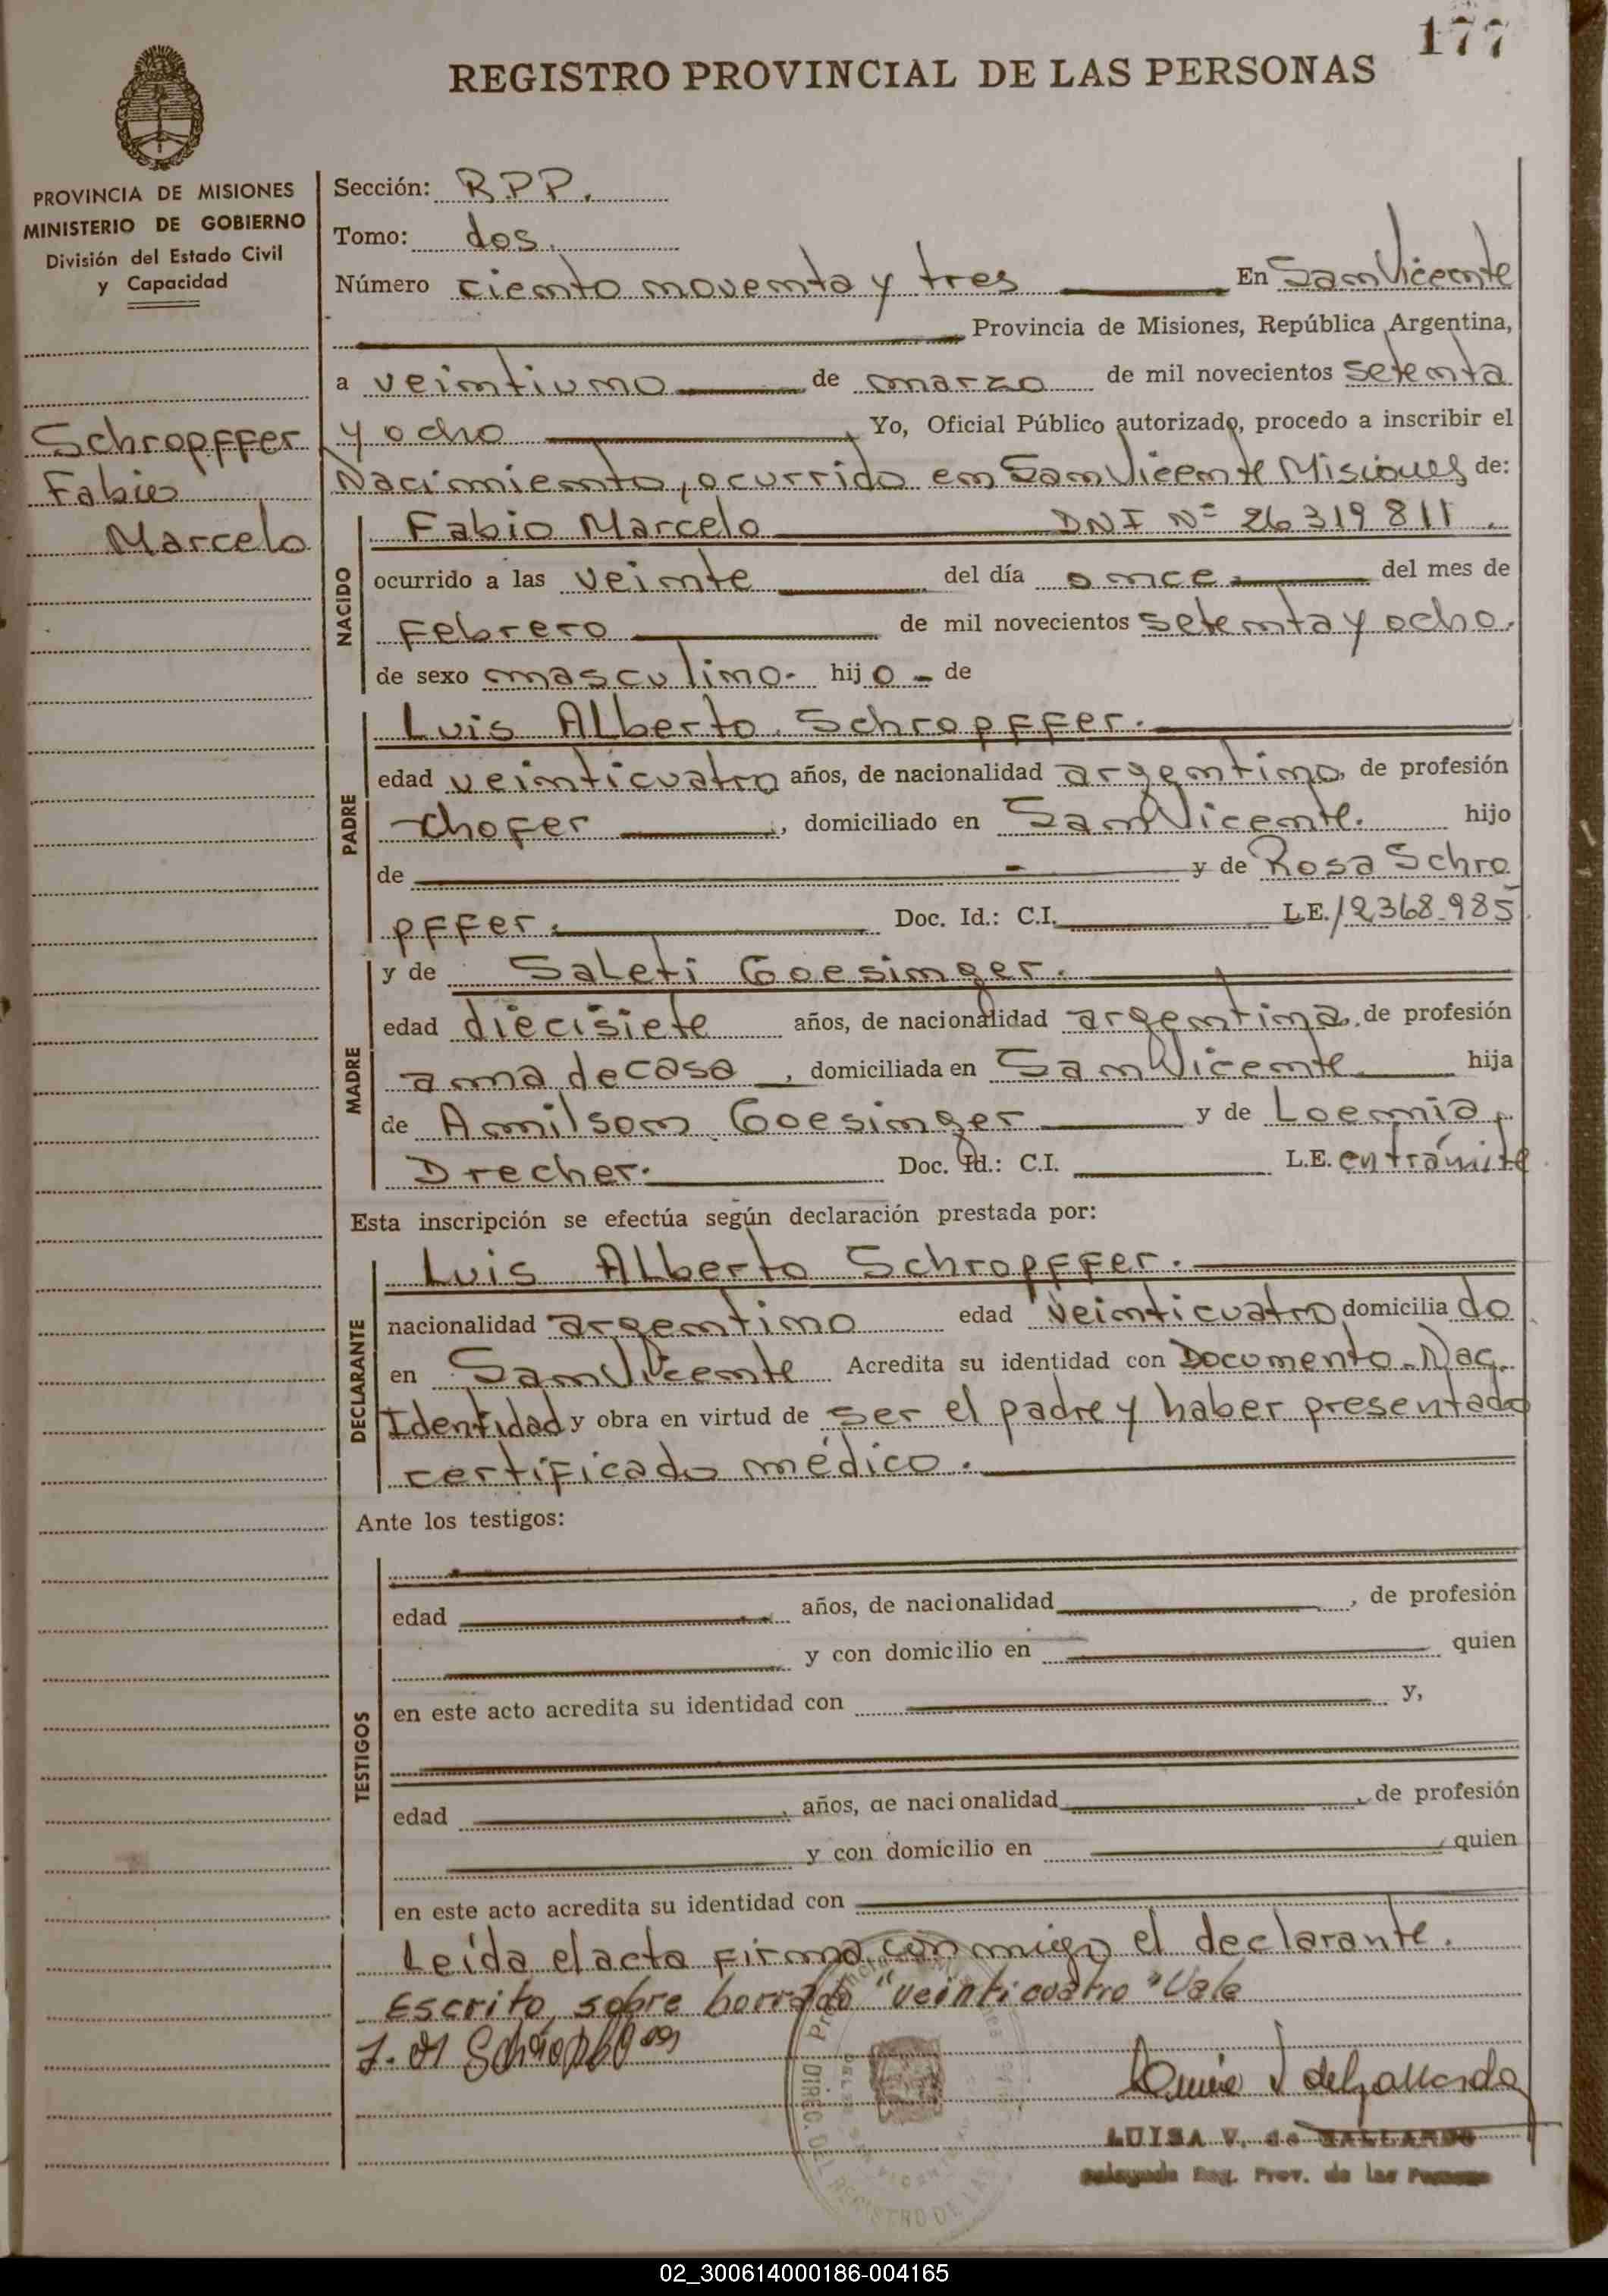 177
REGISTRO PROVINCIAL DE LAS PERSONAS
PROVINCIA DE MISIONES
MINISTERIO DE GOBIERNO
División del Estado Civil
y Capacidad
Schropffer
Fabio
Marcelo
Sección: R.P.P.
Tomo: dos.
Número ciento noventa y tres En San Vicente
Provincia de Misiones, República Argentina,
a veintiuno de marzo de mil novecientos setenta
y ocho Yo, Oficial Público autorizado, procedo a inscribir el
Nacimiento, ocurrido en San Vicente Misiones de:
NACIDO
Fabio Marcelo DNI Nº 26319811.
ocurrido a las veinte del día once del mes de
Febrero de mil novecientos setenta y ocho.
de sexo masculino. hijo de
PADRE
Luis Alberto Schropffer.
edad veinticuatro años, de nacionalidad argentino, de profesión
chofer, domiciliado en San Vicente. hijo
de y de Rosa Schro
pffer. Doc. Id.: C.I. L.E. 12.368.985
MADRE
y de Saleti Goesinger.
edad diecisiete años, de nacionalidad argentina, de profesión
ama de casa, domiciliada en San Vicente hija
de Amilson Goesinger y de Loemia
Drecher. Doc. Id.: C.I. L.E. en trámite
Esta inscripción se efectúa según declaración prestada por:
DECLARANTE
Luis Alberto Schropffer.
nacionalidad argentino edad veinticuatro domiciliado
en San Vicente Acredita su identidad con Documento Nac.
Identidad y obra en virtud de ser el padre y haber presentado
certificado médico.
Ante los testigos:
TESTIGOS
edad años, de nacionalidad, de profesión
y con domicilio en quien
en este acto acredita su identidad con y,
edad, años, de nacionalidad, de profesión
y con domicilio en quien
en este acto acredita su identidad con
Leída el acta firma conmigo el declarante.
Escrito sobre borrado "veinticuatro" Vale
LUISA V. de GALLARDO
Delegada Reg. Prov. de las Personas
DIREC. DEL REGISTRO DE LAS
02_300614000186-004165